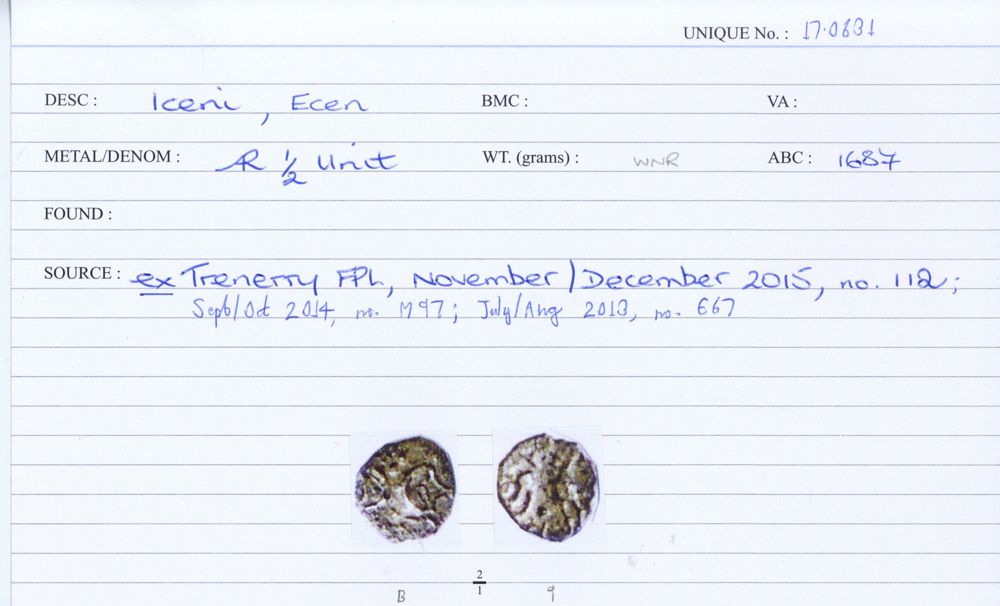 UNIQUE No. : 17·0831
DESC : Iceni, Ecen BMC : VA :
METAL/DENOM : AR ½ Unit WT. (grams) : WNR ABC : 1687
FOUND :
SOURCE : ex Trenerry FPL, November/December 2015, no. 112;
Sept/Oct 2014, no. M97; July/Aug 2013, no. E67
2/1
B 9